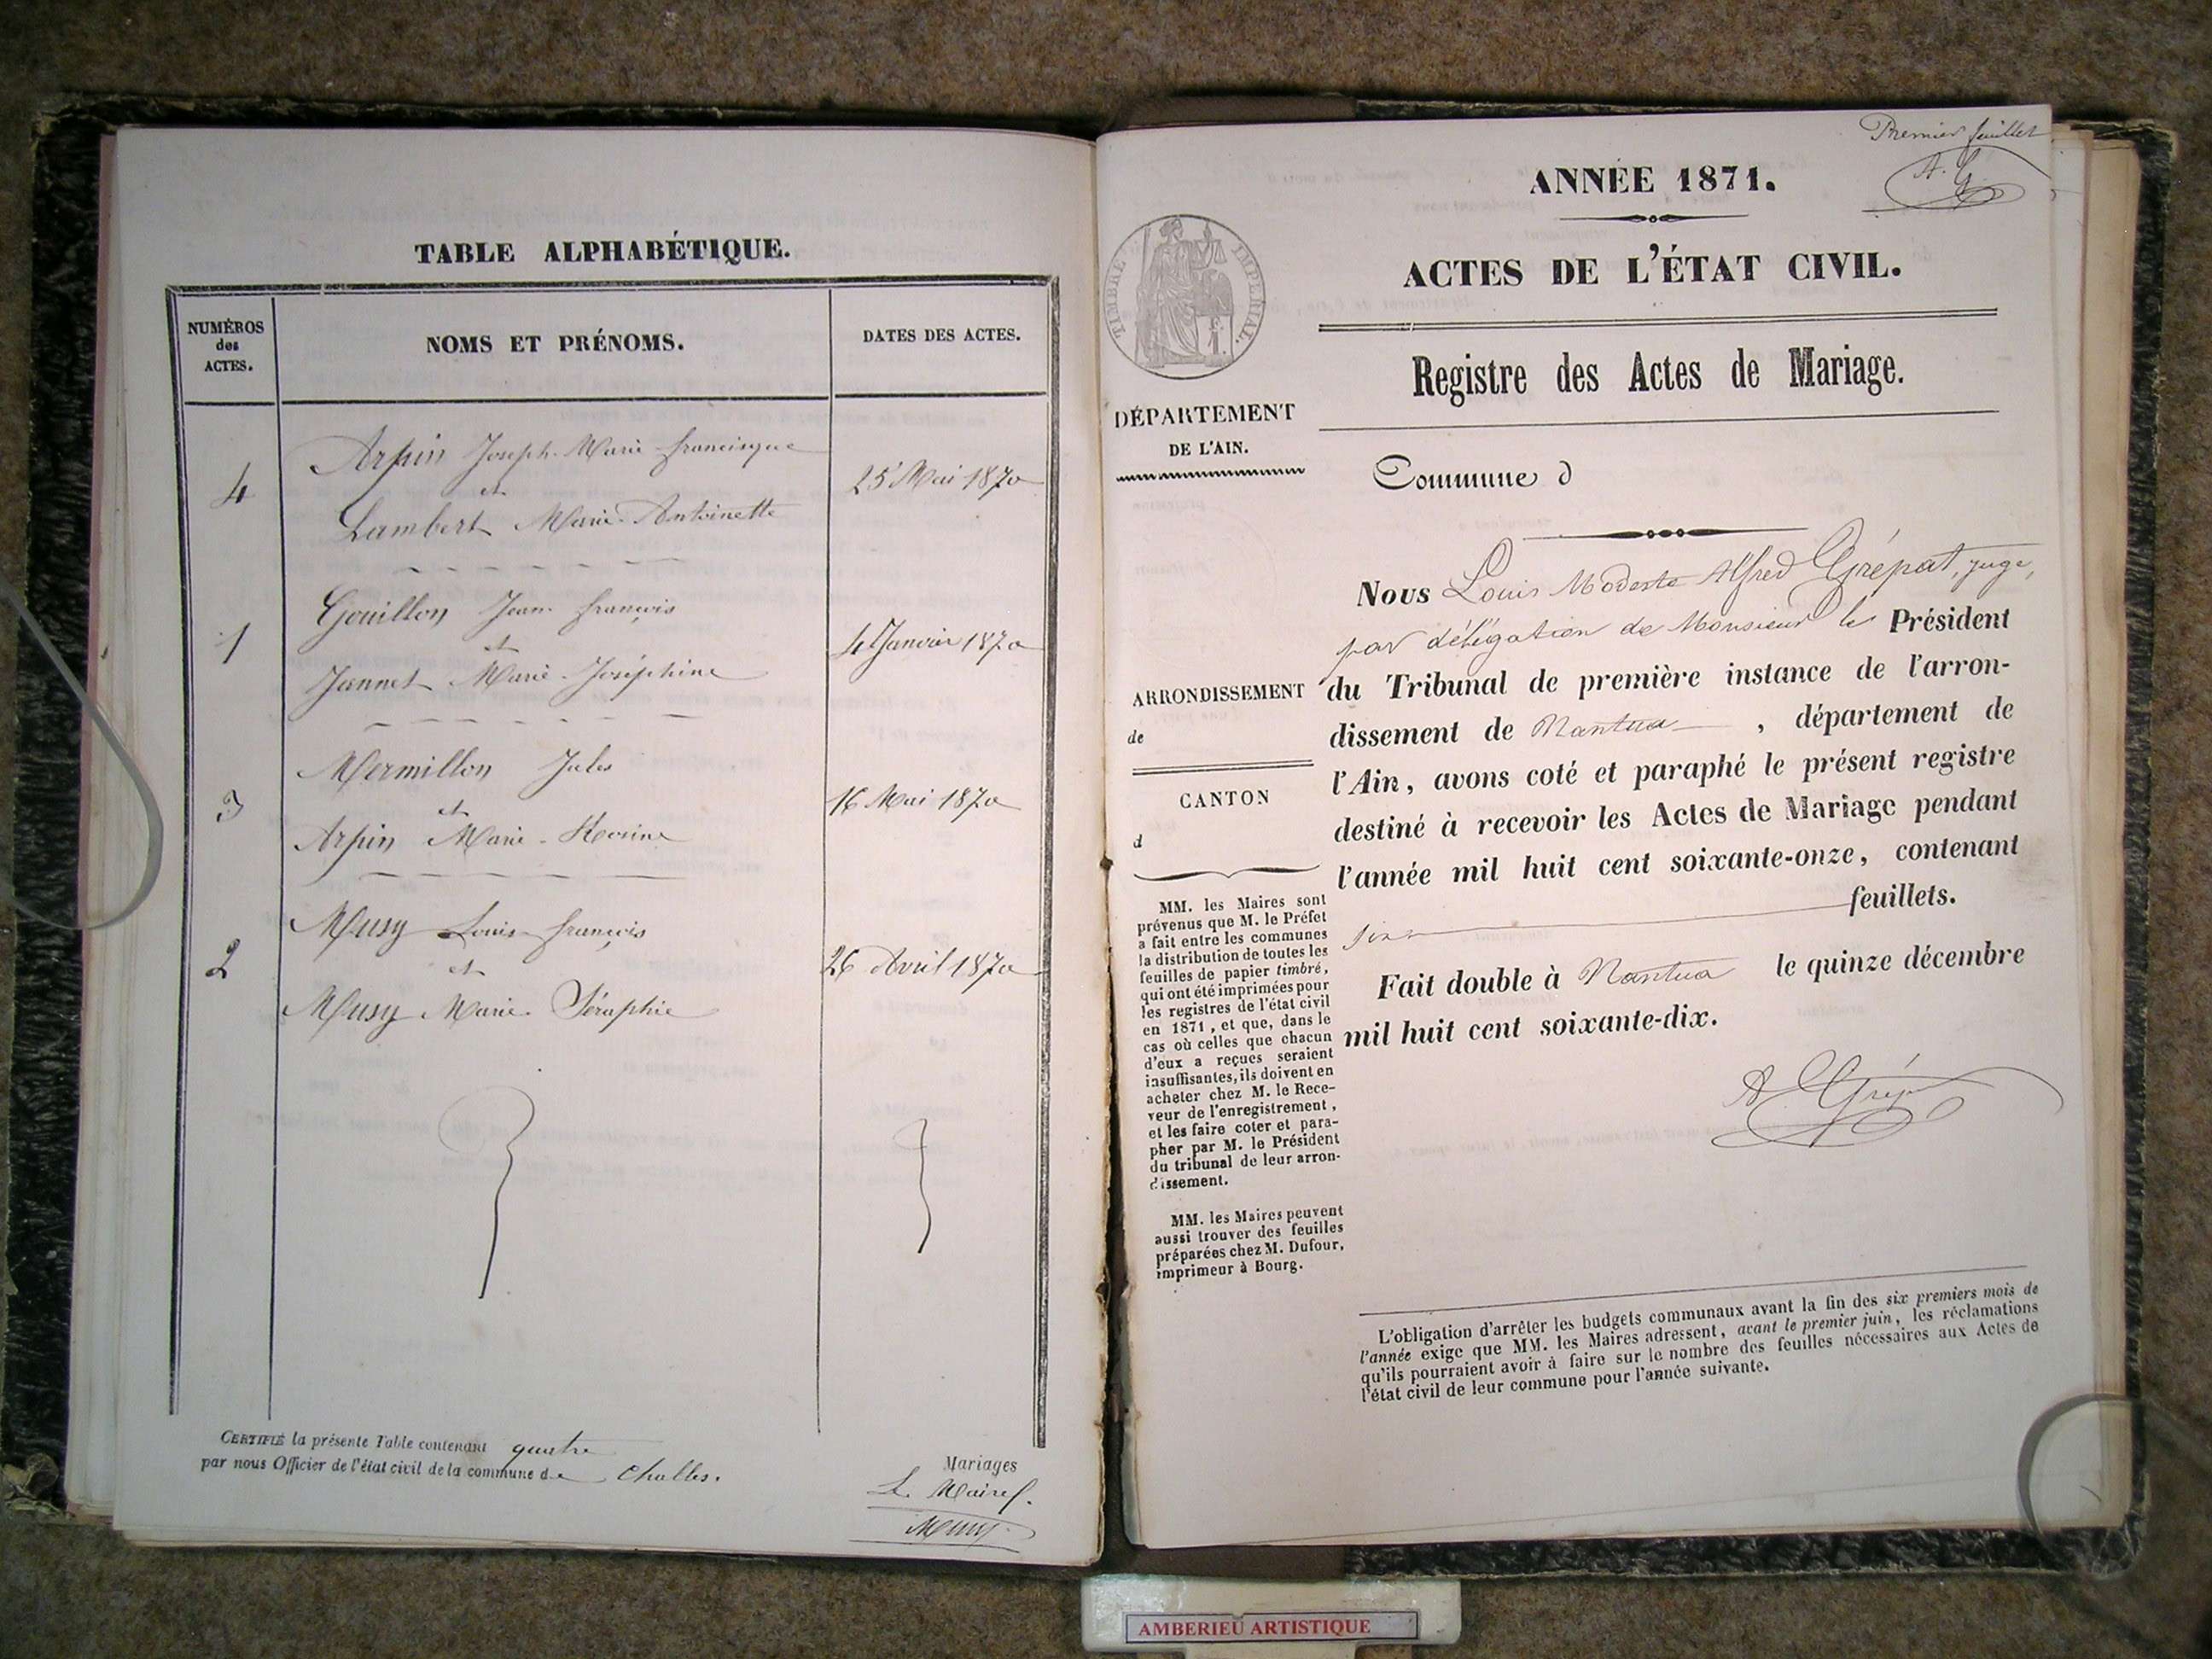 TABLE ALPHABÉTIQUE.
NUMÉROS
des
ACTES.
NOMS ET PRÉNOMS.
DATES DES ACTES.
4
Arpin Joseph-Marie-francisque
et
Lambert Marie-Antoinette
25 Mai 1870
1
Gouillon Jean-françois
et
Jannet Marie-Joséphine
4 Janvier 1870
3
Mermillon Jules
et
Arpin Marie-
16 Mai 1870
2
Musy Louis-françois
et
Musy Marie-Séraphie
26 Avril 1870
CERTIFIÉ la présente Table contenant quatre Mariages
par nous Officier de l'état civil de la commune de Challes.
Le Maire
Musy
Premier feuillet
A. G.
ANNÉE 1871.
ACTES DE L'ÉTAT CIVIL.
TIMBRE IMPÉRIAL.
Registre des Actes de Mariage.
DÉPARTEMENT
DE L'AIN.
Commune d
Nous Louis Modeste Alfred Grépat, juge,
par délégation de Monsieur le Président
du Tribunal de première instance de l'arron-
dissement de Nantua, département de
l'Ain, avons coté et paraphé le présent registre
destiné à recevoir les Actes de Mariage pendant
l'année mil huit cent soixante-onze, contenant
six feuillets.
Fait double à Nantua le quinze décembre
mil huit cent soixante-dix.
A Grép
ARRONDISSEMENT
de
CANTON
d
MM. les Maires sont
prévenus que M. le Préfet
a fait entre les communes
la distribution de toutes les
feuilles de papier timbré,
qui ont été imprimées pour
les registres de l'état civil
en 1871, et que, dans le
cas où celles que chacun
d'eux a reçues seraient
insuffisantes, ils doivent en
acheter chez M. le Rece-
veur de l'enregistrement,
et les faire coter et para-
pher par M. le Président
du tribunal de leur arron-
dissement.
MM. les Maires peuvent
aussi trouver des feuilles
préparées chez M. Dufour,
imprimeur à Bourg.
L'obligation d'arrêter les budgets communaux avant la fin des six premiers mois de
l'année exige que MM. les Maires adressent, avant le premier juin, les réclamations
qu'ils pourraient avoir à faire sur le nombre des feuilles nécessaires aux Actes de
l'état civil de leur commune pour l'année suivante.
AMBERIEU ARTISTIQUE